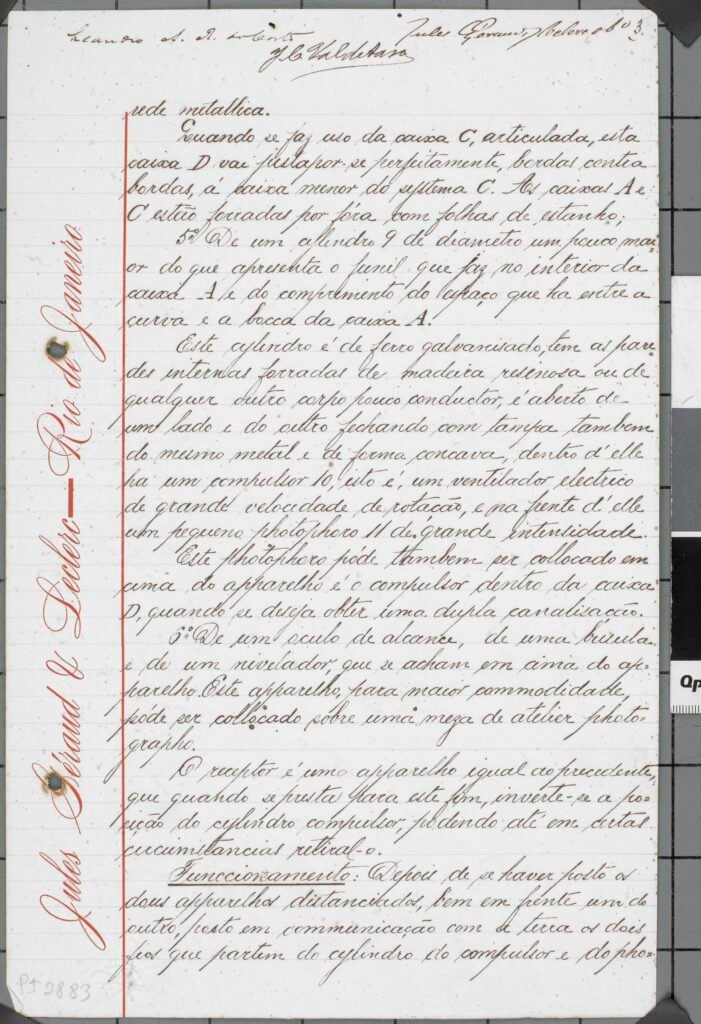 Leandro A. R. da Costa
Jules Géraud, Leclerc & Co 3.
J C Valdetaro
rede metallica.
Quando se faz uso da caixa C, articulada, esta
caixa D vai justapor-se perfeitamente, bordas contra
bordas, á caixa menor do systema C. As caixas A e
C estão forradas por fóra com folhas de estanho;
5º De um cylindro 9 de diametro um pouco mai-
or do que apresenta o funil que faz no interior da
caixa A e do comprimento do espaço que ha entre a
curva e a bocca da caixa A.
Este cylindro é de ferro galvanisado, tem as pare-
des internas forradas de madeira resinosa ou de
qualquer outro corpo pouco conductor, é aberto de
um lado e do outro fechando com tampa tambem
do mesmo metal e de forma concava, dentro d'elle
ha um compulsor 10, isto é, um ventilador electrico
de grande velocidade de rotação, e na frente d'elle
um pequeno photophoro 11 de grande intensidade.
Este photophoro póde tambem ser collocado em
cima do apparelho e o compulsor dentro da caixa
D, quando se deseja obter uma dupla canalisação.
6º De um oculo de alcance, de uma buzula
e de um nivelador, que se acham em cima do ap-
parelho. Este apparelho, para maior commodidade,
póde ser collocado sobre uma meza de atelier photo-
grapho.
O receptor é uma apparelho igual ao precedente,
que quando se presta para este fim, inverte-se a po-
sição do cylindro compulsor, podendo até em certas
circumstancias retiral-o.
Funccionamento: Depois de se haver posto os
dous apparelhos distanciados, bem em frente um do
outro, posto em communicação com a terra os dois
fios que partem do cylindro do compulsor e do pho-
Jules Géraud & Leclerc — Rio de Janeiro
PI 2883
Qp